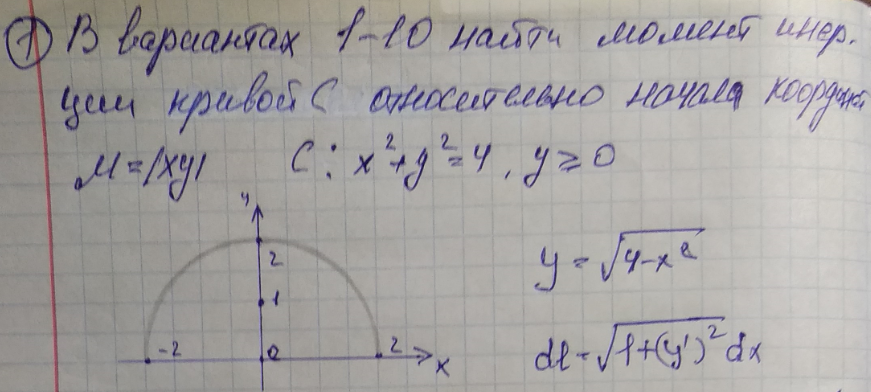 1) В вариантах 1-10 найти момент инер.
ции кривой C относительно начала координат
μ=|xy| C: x²+y²=4, y≥0
y
2
1
-2 0 2 x
y = √(4-x²)
dl = √(1+(y')²) dx